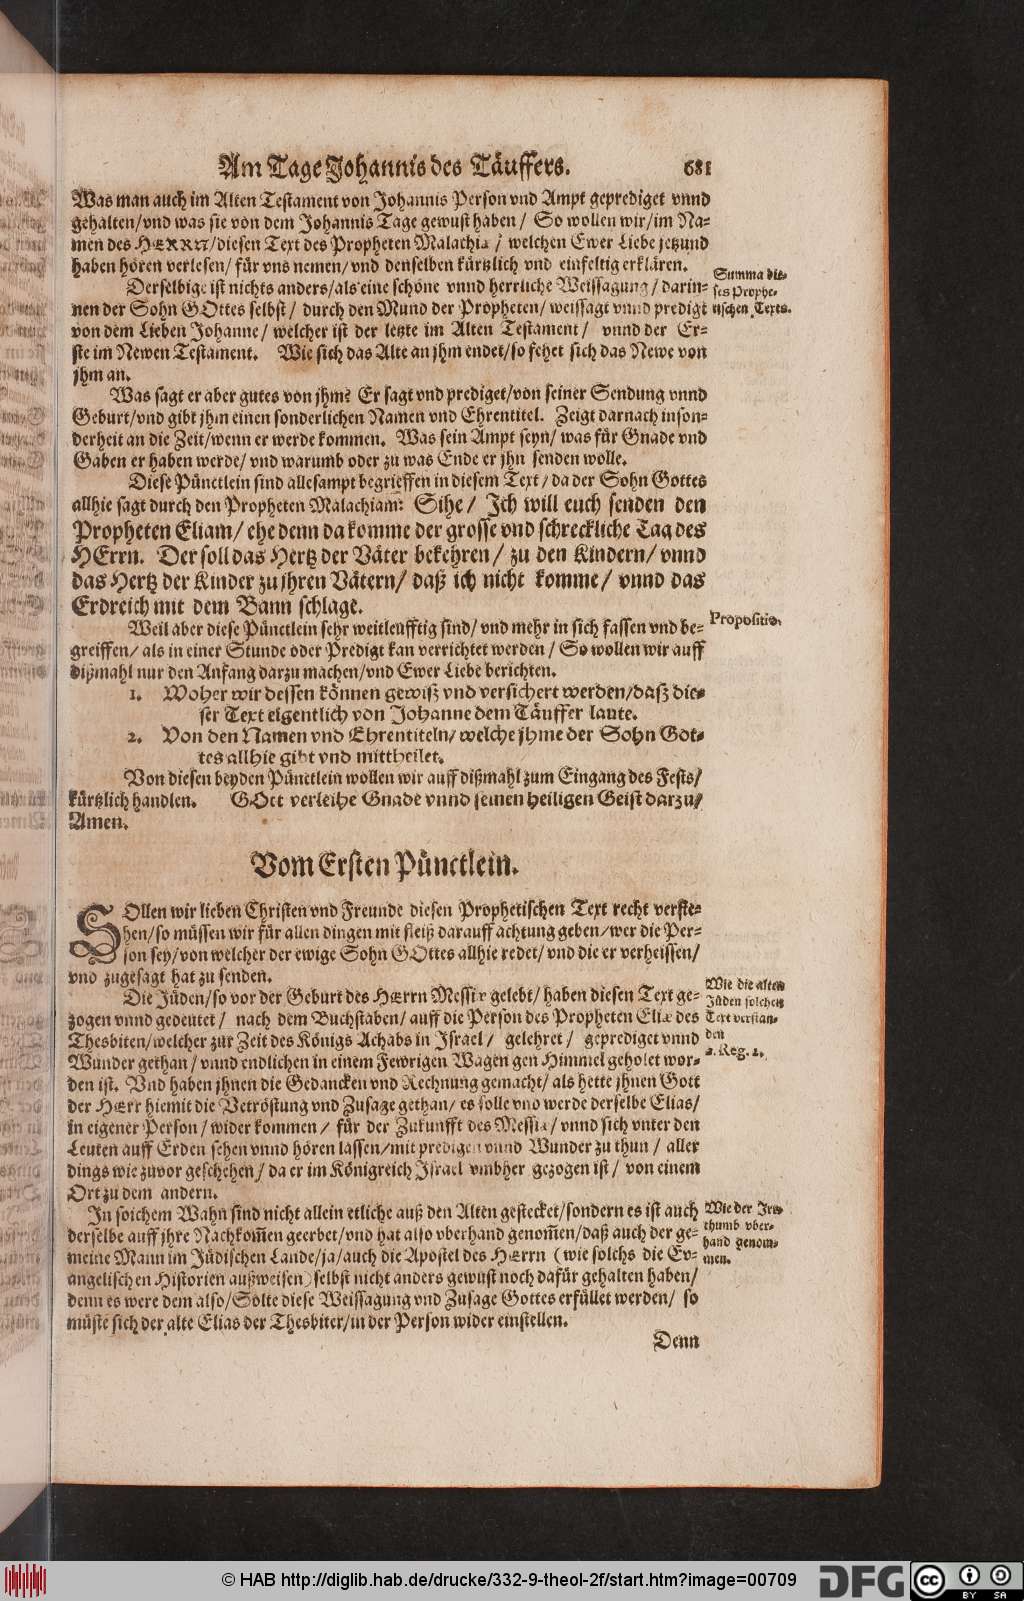 Am Tage Johannis des Täuffers. 681
Was man auch im Alten Testament von Johannis Person vnd Ampt geprediget vnnd
gehalten/vnd was sie von dem Johannis Tage gewust haben/ So wollen wir/im Na-
men des HERRN/diesen Text des Propheten Malachiæ/ welchen Ewer Liebe jetzund
haben hören verlesen/ für vns nemen/vnd denselben kürtzlich vnd einfeltig erklären.
Derselbige ist nichts anders/als eine schöne vnnd herrliche Weissagung/ darin-
nen der Sohn GOttes selbst/ durch den Mund der Propheten/ weissagt vnnd predigt
von dem Lieben Johanne/ welcher ist der letzte im Alten Testament/ vnnd der Er-
ste im Newen Testament. Wie sich das Alte an jhm endet/so fehet sich das Newe von
jhm an.
Summa die-
ses Prophe-
tischen Texts.
Was sagt er aber gutes von jhm? Er sagt vnd prediget/von seiner Sendung vnnd
Geburt/vnd gibt jhm einen sonderlichen Namen vnd Ehrentitel. Zeigt darnach inson-
derheit an die Zeit/wenn er werde kommen. Was sein Ampt seyn/ was für Gnade vnd
Gaben er haben werde/ vnd warumb oder zu was Ende er jhn senden wolle.
Diese Pünctlein sind allesampt begrieffen in diesem Text/ da der Sohn Gottes
allhie sagt durch den Propheten Malachiam: Sihe/ Ich will euch senden den
Propheten Eliam/ ehe denn da komme der grosse vnd schreckliche Tag des
HErrn. Der soll das Hertz der Väter bekehren/ zu den Kindern/ vnnd
das Hertz der Kinder zu jhren Vätern/ daß ich nicht komme/ vnnd das
Erdreich mit dem Bann schlage.
Weil aber diese Pünctlein sehr weitleufftig sind/ vnd mehr in sich fassen vnd be-
greiffen/ als in einer Stunde oder Predigt kan verrichtet werden/ So wollen wir auff
dißmahl nur den Anfang darzu machen/vnd Ewer Liebe berichten.
Propositio.
1. Woher wir dessen können gewiß vnd versichert werden/daß die-
ser Text eigentlich von Johanne dem Täuffer laute.
2. Von den Namen vnd Ehrentiteln/ welche jhme der Sohn Got-
tes allhie gibt vnd mittheilet.
Von diesen beyden Pünctlein wollen wir auff dißmahl zum Eingang des Fests/
kürtzlich handlen. GOtt verleihe Gnade vnnd seinen heiligen Geist darzu/
Amen.
Vom Ersten Pünctlein.
SOllen wir lieben Christen vnd Freunde diesen Prophetischen Text recht verste-
hen/so müssen wir für allen dingen mit fleiß darauff achtung geben/wer die Per-
son sey/von welcher der ewige Sohn GOttes allhie redet/ vnd die er verheissen/
vnd zugesagt hat zu senden.
Die Jüden/so vor der Geburt des HErrn Messiæ gelebt/ haben diesen Text ge-
zogen vnnd gedeutet/ nach dem Buchstaben/ auff die Person des Propheten Eliæ des
Thesbiten/welcher zur Zeit des Königs Achabs in Israel/ gelehret/ geprediget vnnd
Wunder gethan/ vnnd endlichen in einem Fewrigen Wagen gen Himmel geholet wor-
den ist. Vnd haben jhnen die Gedancken vnd Rechnung gemacht/ als hette jhnen Gott
der HErr hiemit die Vetröstung vnd Zusage gethan/ es solle vnd werde derselbe Elias/
in eigener Person/ wider kommen/ für der Zukunfft des Messiæ/ vnnd sich vnter den
Leuten auff Erden sehen vnnd hören lassen/mit predigen vnnd Wunder zu thun/ aller
dings wie zuvor geschehen/ da er im Königreich Israel vmbher gezogen ist/ von einem
Ort zu dem andern.
Wie die alten
Jüden solchen
Text verstan-
den
2. Reg. 2.
In solchem Wahn sind nicht allein etliche auß den Alten gestecket/sondern es ist auch
derselbe auff jhre Nachkom̃en geerbet/vnd hat also vberhand genom̃en/daß auch der ge-
meine Mann im Jüdischen Lande/ja/auch die Apostel des HErrn (wie solchs die Ev-
angelischen Historien außweisen) selbst nicht anders gewust noch dafür gehalten haben/
denn es were dem also/Solte diese Weissagung vnd Zusage Gottes erfüllet werden/ so
müste sich der alte Elias der Thesbiter/in der Person wider einstellen.
Wie der Irr-
thumb vber-
hand genom-
men.
Denn
© HAB http://diglib.hab.de/drucke/332-9-theol-2f/start.htm?image=00709
DFG
cc
BY SA